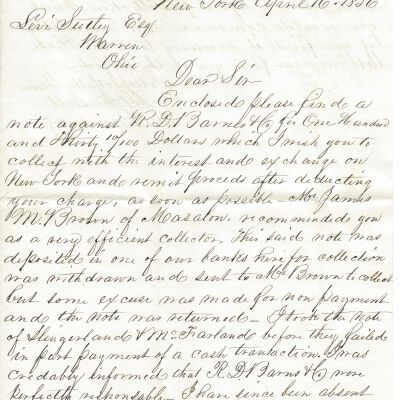 New York April 16. 1856
Levi Sutley Esq
Warren
Ohio
Dear Sir
Enclosed please find a
note against R. D. Barnes & Co for One Hundred
and Thirty /100 Dollars which I wish you to
collect with the interest and exchange on
New York and remit proceeds after deducting
your charge, as soon as possible – Mr James
M. Brown of Masalon. recommended you
as a very efficient collector. This said note was
deposited in one of our banks here for collection
was withdrawn and sent to Mr Brown to collect
but some excuse was made for non payment
and the note was returned – I took the note
of Slingerland & McFarland before they failed
in part payment of a cash transaction. I was
credably informed that R. D. Barns & Co were
perfectly responsable – I have since been absent